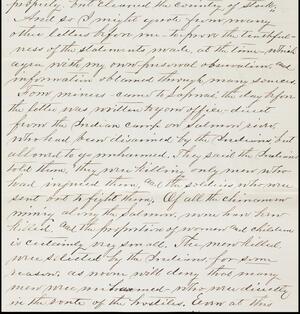 property. but cleaned the country of stock.
And so I might quote from many
other letters before me - to prove the truthful-
ness of the statements made, at the time - which
agree with my own personal observation, and
information obtained through many sources.
miners - came to the day before
the letter was written to your office - direct
from the Indian camp on Salmon river,
who had been disarmed by the Indians but
allowed to go unharmed. They said the Indians
told them, they were killing only men who
had injured them, and the soldiers who were
sent out to fight them. Of all the chinamen
mining along the Salmon, none have been
killed. and the proportion of women and children
is certainly very small. The men killed
were selected by the Indians, for some
reason, as none will deny that many
men were unharmed - who were directly
in the route of the hostiles. Even at this